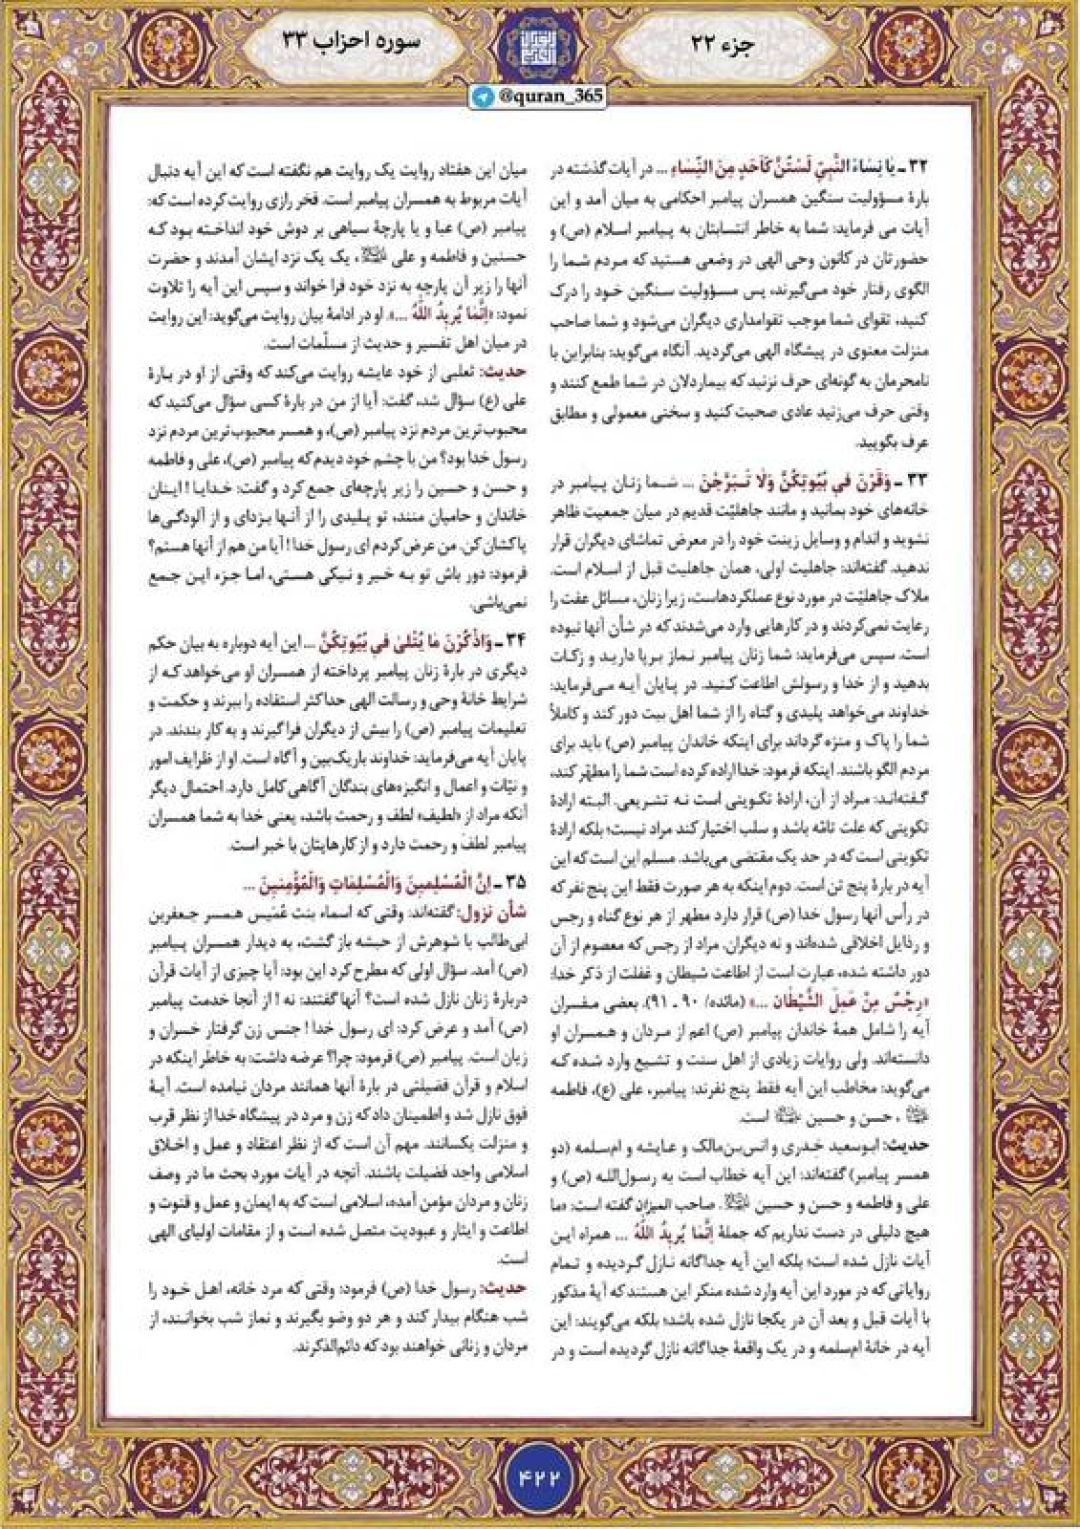 جزء ۲۲
سوره احزاب ۳۳
@quran_365
۳۲ ـ یَا نِسَاءَ النَّبِيِّ لَسْتُنَّ كَأَحَدٍ مِنَ النِّسَاءِ ... در آیات گذشته در
بارهٔ مسؤولیت سنگین همسران پیامبر احکامی به میان آمد و این
آیات می فرماید: شما به خاطر انتسابتان به پیامبر اسلام (ص) و
حضورتان در کانون وحی الهی در وضعی هستید که مردم شما را
الگوی رفتار خود می‌گیرند، پس مسؤولیت سنگین خود را درک
کنید، تقوای شما موجب تقوامداری دیگران می‌شود و شما صاحب
منزلت معنوی در پیشگاه الهی می‌گردید. آنگاه می‌گوید: بنابراین با
نامحرمان به گونه‌ای حرف نزنید که بیماردلان در شما طمع کنند و
وقتی حرف می‌زنید عادی صحبت کنید و سخنی معمولی و مطابق
عرف بگویید.
۳۳ ـ وَقَرْنَ فِي بُيُوتِكُنَّ وَلَا تَبَرَّجْنَ ... شما زنان پیامبر در
خانه‌های خود بمانید و مانند جاهلیّت قدیم در میان جمعیت ظاهر
نشوید و اندام و وسایل زینت خود را در معرض تماشای دیگران قرار
ندهید. گفته‌اند: جاهلیت اولی، همان جاهلیت قبل از اسلام است.
ملاک جاهلیّت در مورد نوع عملکردهاست، زیرا زنان، مسائل عفت را
رعایت نمی‌کردند و در کارهایی وارد می‌شدند که در شأن آنها نبوده
است. سپس می‌فرماید: شما زنان پیامبر نماز برپا دارید و زکات
بدهید و از خدا و رسولش اطاعت کنید. در پایان آیه می‌فرماید:
خداوند می‌خواهد پلیدی و گناه را از شما اهل بیت دور کند و کاملاً
شما را پاک و منزه گرداند برای اینکه خاندان پیامبر (ص) باید برای
مردم الگو باشند. اینکه فرمود: خدا اراده کرده است شما را مطهّر کند،
گفته‌اند: مراد از آن، ارادهٔ تکوینی است نه تشریعی. البته ارادهٔ
تکوینی که علت تامّه باشد و سلب اختیار کند مراد نیست؛ بلکه ارادهٔ
تکوینی است که در حد یک مقتضی می‌باشد. مسلم این است که این
آیه در بارهٔ پنج تن است. دوم اینکه به هر صورت فقط این پنج نفر که
در رأس آنها رسول خدا (ص) قرار دارد مطهر از هر نوع گناه و رجس
و رذایل اخلاقی شده‌اند و نه دیگران. مراد از رجس که معصوم از آن
دور داشته شده، عبارت است از اطاعت شیطان و غفلت از ذکر خدا:
«رِجْسٌ مِنْ عَمَلِ الشَّيْطَانِ ...» (مائده/ ۹۰ ـ ۹۱). بعضی مفسران
آیه را شامل همهٔ خاندان پیامبر (ص) اعم از مردان و همسران او
دانسته‌اند. ولی روایات زیادی از اهل سنت و تشیع وارد شده که
می‌گوید: مخاطب این آیه فقط پنج نفرند: پیامبر، علی (ع)، فاطمه
، حسن و حسین است.
حدیث: ابوسعید خدری و انس‌بن‌مالک و عایشه و ام‌سلمه (دو
همسر پیامبر) گفته‌اند: این آیه خطاب است به رسول‌الله (ص) و
علی و فاطمه و حسن و حسین . صاحب المیزان گفته است: «ما
هیچ دلیلی در دست نداریم که جملهٔ إِنَّمَا يُرِيدُ اللَّهُ ... همراه این
آیات نازل شده است؛ بلکه این آیه جداگانه نازل گردیده و تمام
روایاتی که در مورد این آیه وارد شده منکر این هستند که آیهٔ مذکور
با آیات قبل و بعد آن در یکجا نازل شده باشد؛ بلکه می‌گویند: این
آیه در خانهٔ ام‌سلمه و در یک واقعهٔ جداگانه نازل گردیده است و در
میان این هفتاد روایت یک روایت هم نگفته است که این آیه دنبال
آیات مربوط به همسران پیامبر است. فخر رازی روایت کرده است که:
پیامبر (ص) عبا و یا پارچهٔ سیاهی بر دوش خود انداخته بود که
حسنین و فاطمه و علی ، یک یک نزد ایشان آمدند و حضرت
آنها را زیر آن پارچه به نزد خود فرا خواند و سپس این آیه را تلاوت
نمود: «إِنَّمَا يُرِيدُ اللَّهُ ...». او در ادامهٔ بیان روایت می‌گوید: این روایت
در میان اهل تفسیر و حدیث از مسلّمات است.
حدیث: ثعلبی از خود عایشه روایت می‌کند که وقتی از او در بارهٔ
علی (ع) سؤال شد، گفت: آیا از من در بارهٔ کسی سؤال می‌کنید که
محبوب‌ترین مردم نزد پیامبر (ص)، و همسر محبوب‌ترین مردم نزد
رسول خدا بود؟ من با چشم خود دیدم که پیامبر (ص)، علی و فاطمه
و حسن و حسین را زیر پارچه‌ای جمع کرد و گفت: خدایا! اینان
خاندان و حامیان منند، تو پلیدی را از آنها بزدای و از آلودگی‌ها
پاکشان کن. من عرض کردم ای رسول خدا! آیا من هم از آنها هستم؟
فرمود: دور باش تو به خیر و نیکی هستی، اما جزء این جمع
نمی‌باشی.
۳۴ ـ وَاذْكُرْنَ مَا يُتْلَىٰ فِي بُيُوتِكُنَّ ... این آیه دوباره به بیان حکم
دیگری در بارهٔ زنان پیامبر پرداخته از همسران او می‌خواهد که از
شرایط خانهٔ وحی و رسالت الهی حداکثر استفاده را ببرند و حکمت و
تعلیمات پیامبر (ص) را بیش از دیگران فرا گیرند و به کار بندند. در
پایان آیه می‌فرماید: خداوند باریک‌بین و آگاه است. او از ظرایف امور
و نیّات و اعمال و انگیزه‌های بندگان آگاهی کامل دارد. احتمال دیگر
آنکه مراد از «لطیف» لطف و رحمت باشد، یعنی خدا به شما همسران
پیامبر لطف و رحمت دارد و از کارهایتان با خبر است.
۳۵ ـ إِنَّ الْمُسْلِمِينَ وَالْمُسْلِمَاتِ وَالْمُؤْمِنِينَ ...
شأن نزول: گفته‌اند: وقتی که اسماء بنت عُمَیس همسر جعفربن
ابی‌طالب با شوهرش از حبشه باز گشت، به دیدار همسران پیامبر
(ص) آمد. سؤال اولی که مطرح کرد این بود: آیا چیزی از آیات قرآن
دربارهٔ زنان نازل شده است؟ آنها گفتند: نه! از آنجا خدمت پیامبر
(ص) آمد و عرض کرد: ای رسول خدا! جنس زن گرفتار خسران و
زیان است. پیامبر (ص) فرمود: چرا؟ عرضه داشت: به خاطر اینکه در
اسلام و قرآن فضیلتی در بارهٔ آنها همانند مردان نیامده است. آیهٔ
فوق نازل شد و اطمینان داد که زن و مرد در پیشگاه خدا از نظر قرب
و منزلت یکسانند. مهم آن است که از نظر اعتقاد و عمل و اخلاق
اسلامی واجد فضیلت باشند. آنچه در آیات مورد بحث ما در وصف
زنان و مردان مؤمن آمده، اسلامی است که به ایمان و عمل و قنوت و
اطاعت و ایثار و عبودیت متصل شده است و از مقامات اولیای الهی
است.
حدیث: رسول خدا (ص) فرمود: وقتی که مرد خانه، اهل خود را
شب هنگام بیدار کند و هر دو وضو بگیرند و نماز شب بخوانند، از
مردان و زنانی خواهند بود که دائم‌الذکرند.
۴۲۲